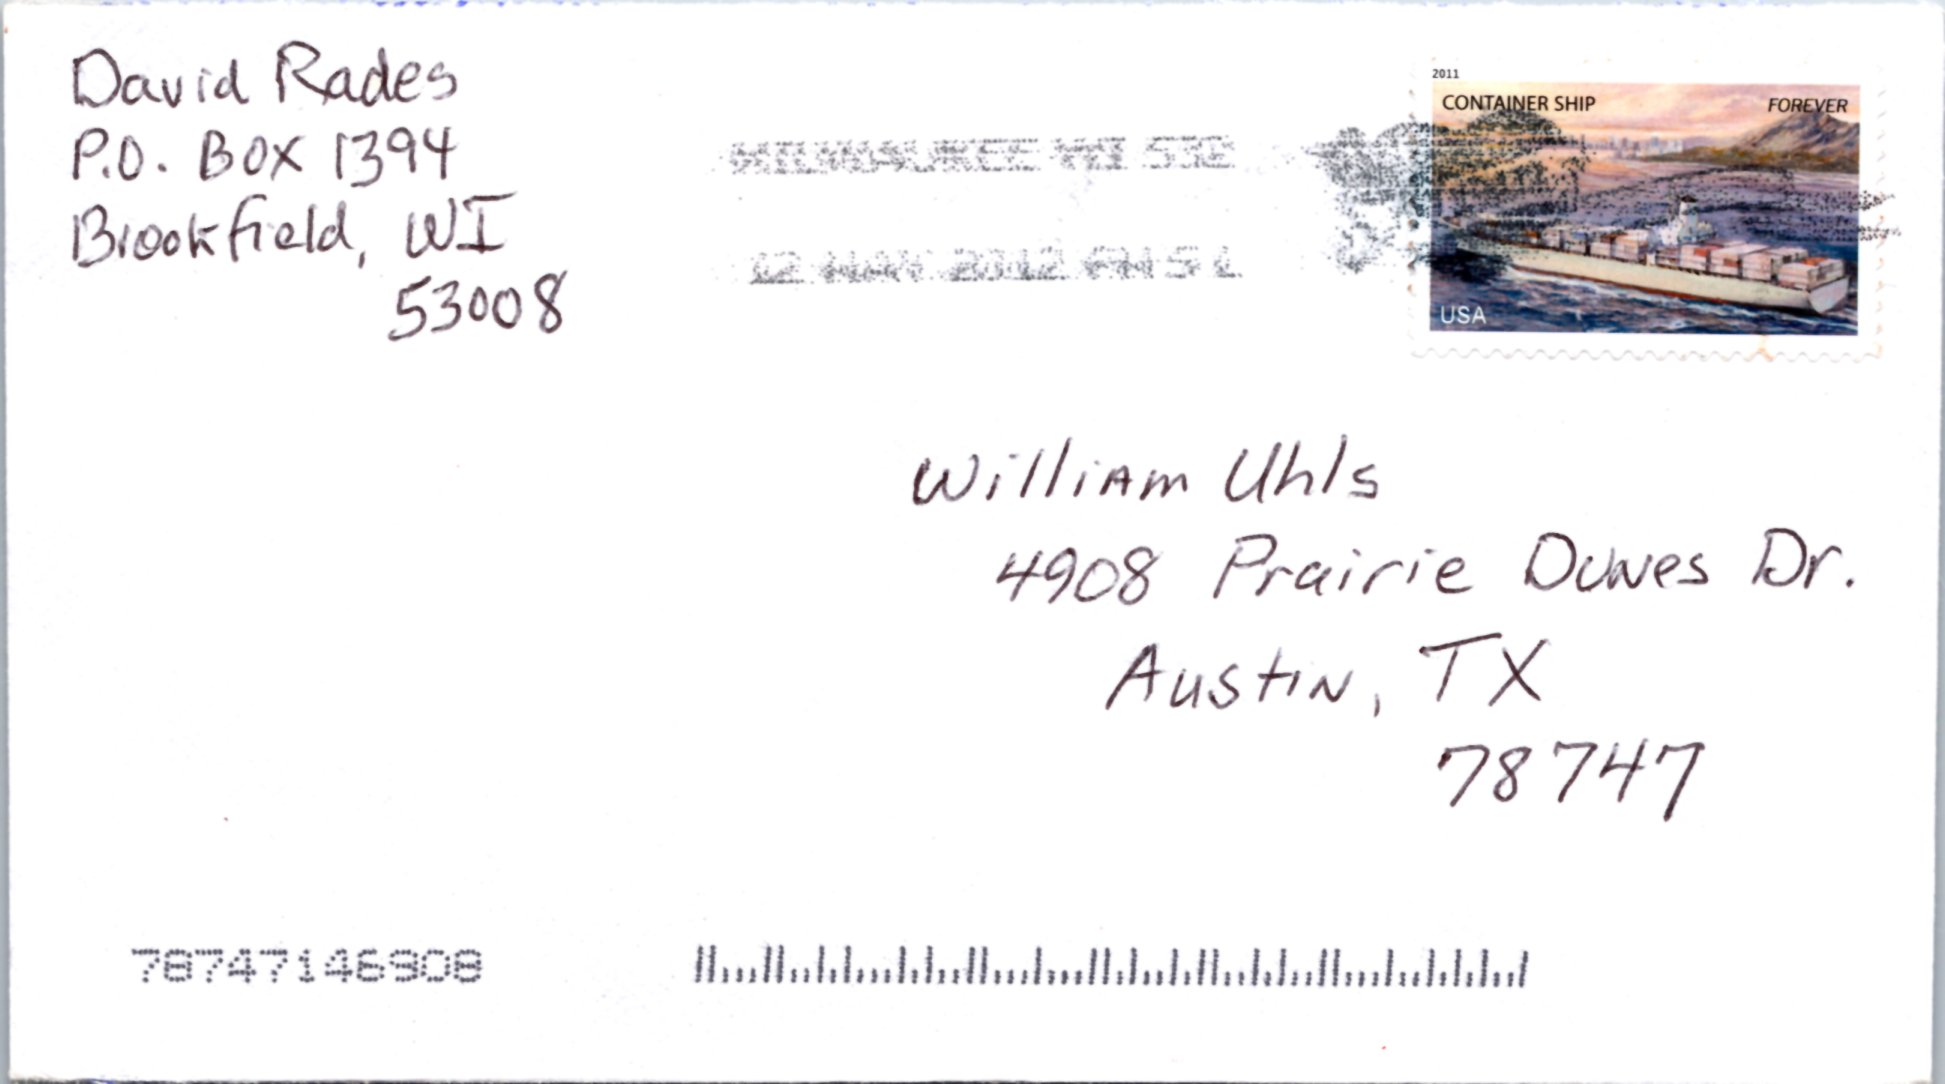 David Rades
P.O. BOX 1394
Brookfield, WI
53008
MILWAUKEE WI 532
12 MAY 2012 PM 5 L
2011
CONTAINER SHIP FOREVER
USA
William Uhls
4908 Prairie Dunes Dr.
Austin, TX
78747
78747146908